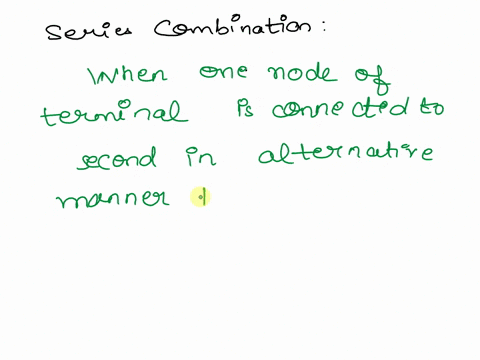 Series Combination:
When one node of
terminal is connected to
second in alternative
manner